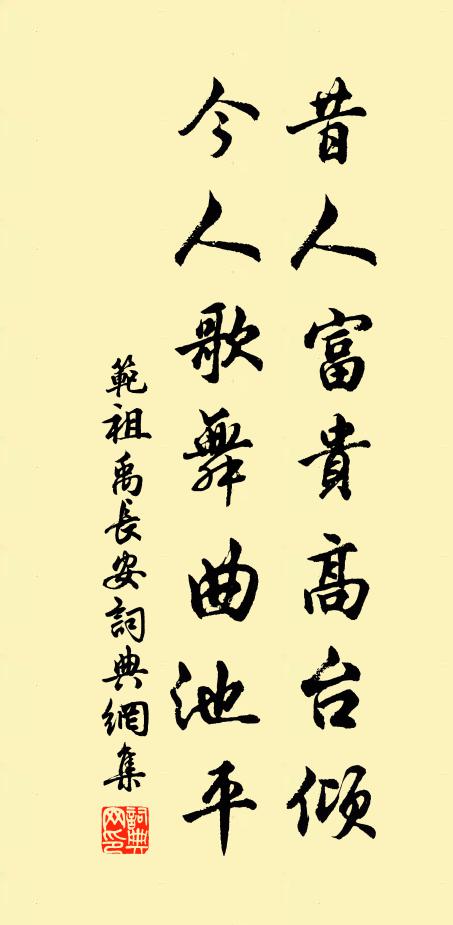 昔人富貴高台傾
今人歌舞曲池平
範祖禹長安詞典網集
詞典网印